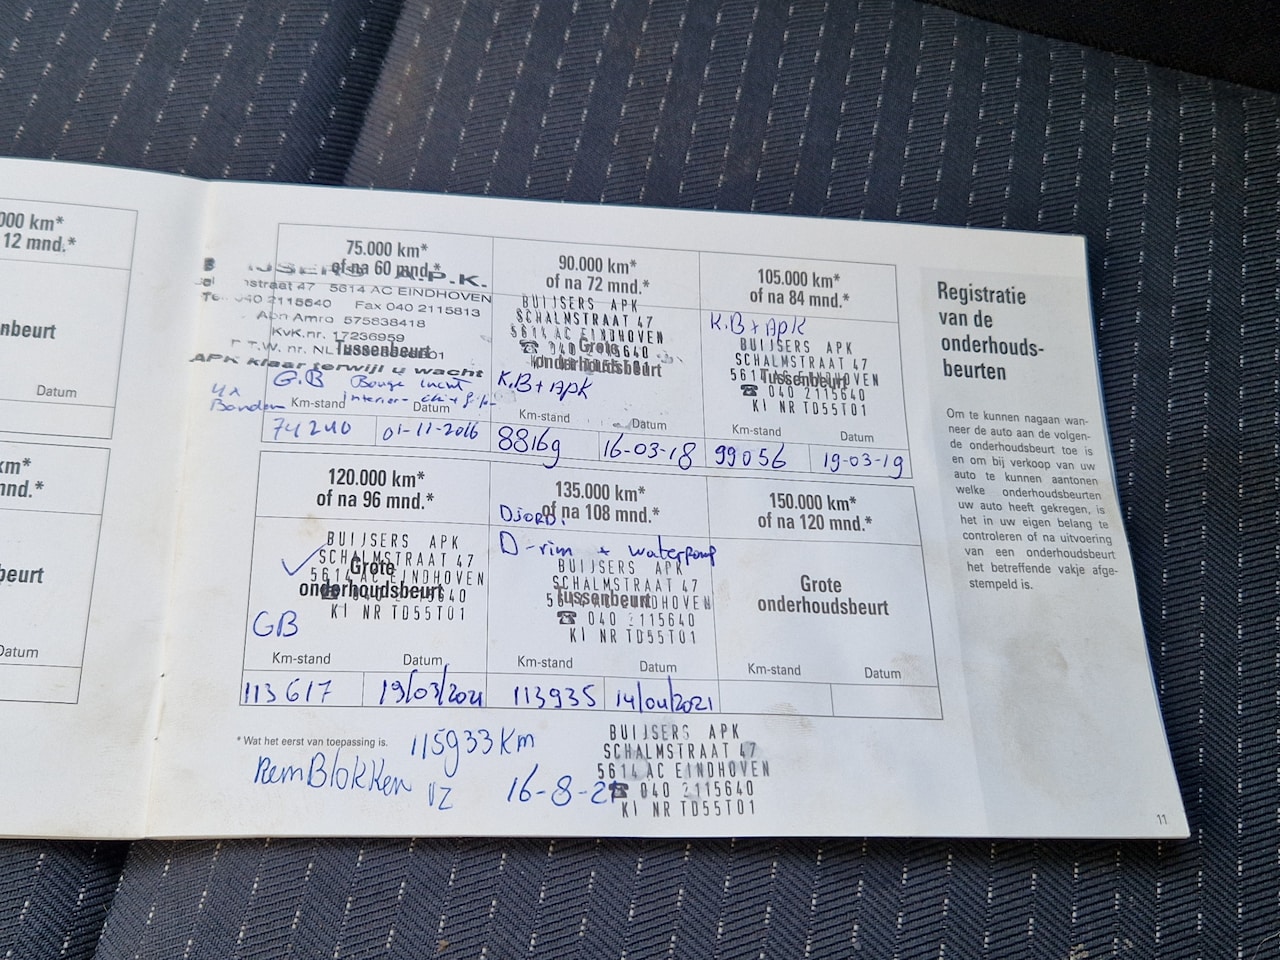 000 km*
12 mnd.*
nbeurt
Datum
km*
nnd.*
beurt
Datum
75.000 km*
of na 60 mnd.*
A.P.K.
straat 47 5614 AC EINDHOVEN
040 2115640 Fax 040 2115813
Abn Amro 575838418
KvK.nr. 17236959
T.W. nr. NL
Tussenbeurt
APK klaar terwijl u wacht
G.B Bougie
4x
Banden
Km-stand
Datum
74240
01-11-2016
90.000 km*
of na 72 mnd.*
BUIJSERS APK
SCHALMSTRAAT 47
5614 AC EINDHOVEN
Grote
☎ 040 2115640
onderhoudsbeurt
K.B + Apk
Km-stand
Datum
88169
16-03-18
105.000 km*
of na 84 mnd.*
K.B + APK
BUIJSERS APK
SCHALMSTRAAT 47
5614 AC EINDHOVEN
Tussenbeurt
☎ 040 2115640
KI NR TD55T01
Km-stand
Datum
99056
19-03-19
120.000 km*
of na 96 mnd.*
BUIJSERS APK
SCHALMSTRAAT 47
Grote
5614 AC EINDHOVEN
onderhoudsbeurt
☎ 040 2115640
KI NR TD55T01
GB
Km-stand
Datum
113617
19/03/2021
135.000 km*
of na 108 mnd.*
D-rim + waterpomp
BUIJSERS APK
SCHALMSTRAAT 47
5614 AC EINDHOVEN
Tussenbeurt
☎ 040 2115640
KI NR TD55T01
Km-stand
Datum
113935
14/04/2021
150.000 km*
of na 120 mnd.*
Grote
onderhoudsbeurt
Km-stand
Datum
* Wat het eerst van toepassing is.
115933 Km
RemBlokken VZ
16-8-21
BUIJSERS APK
SCHALMSTRAAT 47
5614 AC EINDHOVEN
☎ 040 2115640
KI NR TD55T01
Registratie
van de
onderhouds-
beurten
Om te kunnen nagaan wan-
neer de auto aan de volgen-
de onderhoudsbeurt toe is
en om bij verkoop van uw
auto te kunnen aantonen
welke onderhoudsbeurten
uw auto heeft gekregen, is
het in uw eigen belang te
controleren of na uitvoering
van een onderhoudsbeurt
het betreffende vakje afge-
stempeld is.
11